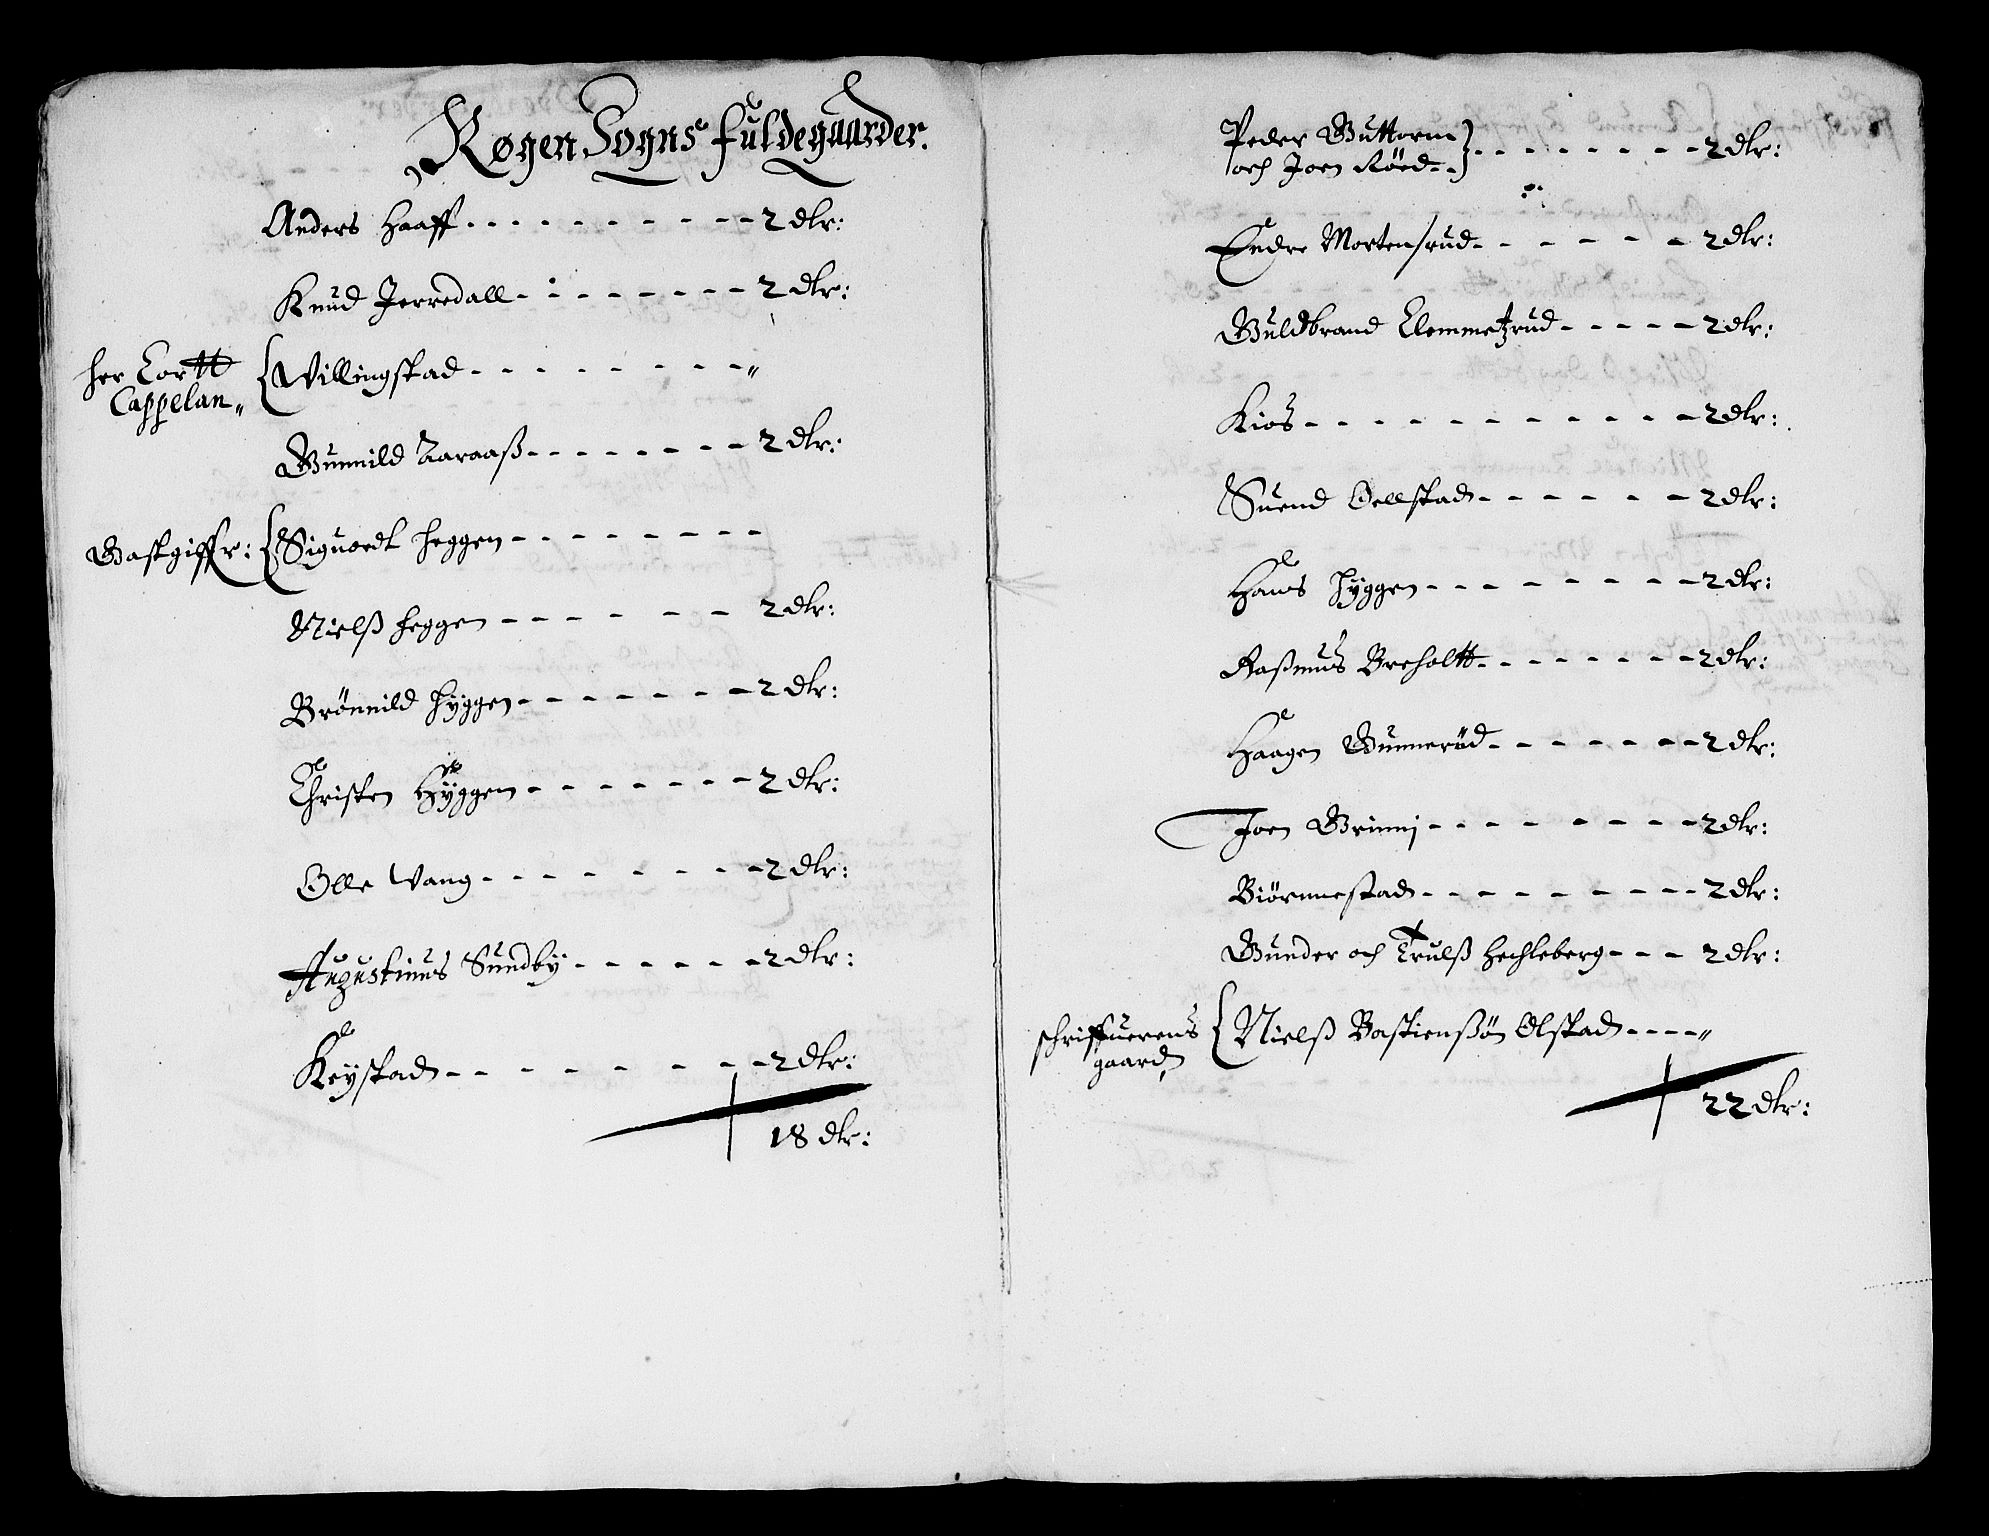 Røgen Sogns fuldegaarder.
Anders Haaff - - - - - - - - - - 2 dlr:
Knud Jerredall - - - - - - - - 2 dlr:
her Cortt
Cappelan„ { Willingstad - - - - - - - - „
Gunnild Aaraaß - - - - - - - 2 dlr:
Gastgiffr: { Siguordt Heggen - - - - - - - -
Nielß Heggen - - - - - - 2 dlr:
Brönnild Hyggen - - - - - - - 2 dlr:
Christen Hyggen - - - - - - - 2 dlr:
Olle Wang - - - - - - - - 2 dlr:
Augustinus Sundby - - - - - - 2 dlr:
Keystad - - - - - - - - 2 dlr:
18 dlr:
Peder Guttorm
och Joen Röed - - } - - - - - - - - 2 dlr:
Endre Mortensrud - - - - - - 2 dlr:
Guldbrand Clemmetzrud - - - - - 2 dlr:
Kios - - - - - - - - - - - - 2 dlr:
Suend Oellstad - - - - - - 2 dlr:
Hans Hyggen - - - - - - - - 2 dlr:
Raßmus Breholtt - - - - - - - 2 dlr:
Haagen Gunnerüd - - - - - - - 2 dlr:
Joen Grinnj - - - - - - - - 2 dlr:
Biörnnestad - - - - - - - - - 2 dlr:
Gunder och Trulß Hechleberg - - - 2 dlr:
schriffuerens
gaard { Nielß Bastienßön Olstad - - - - „
22 dlr: